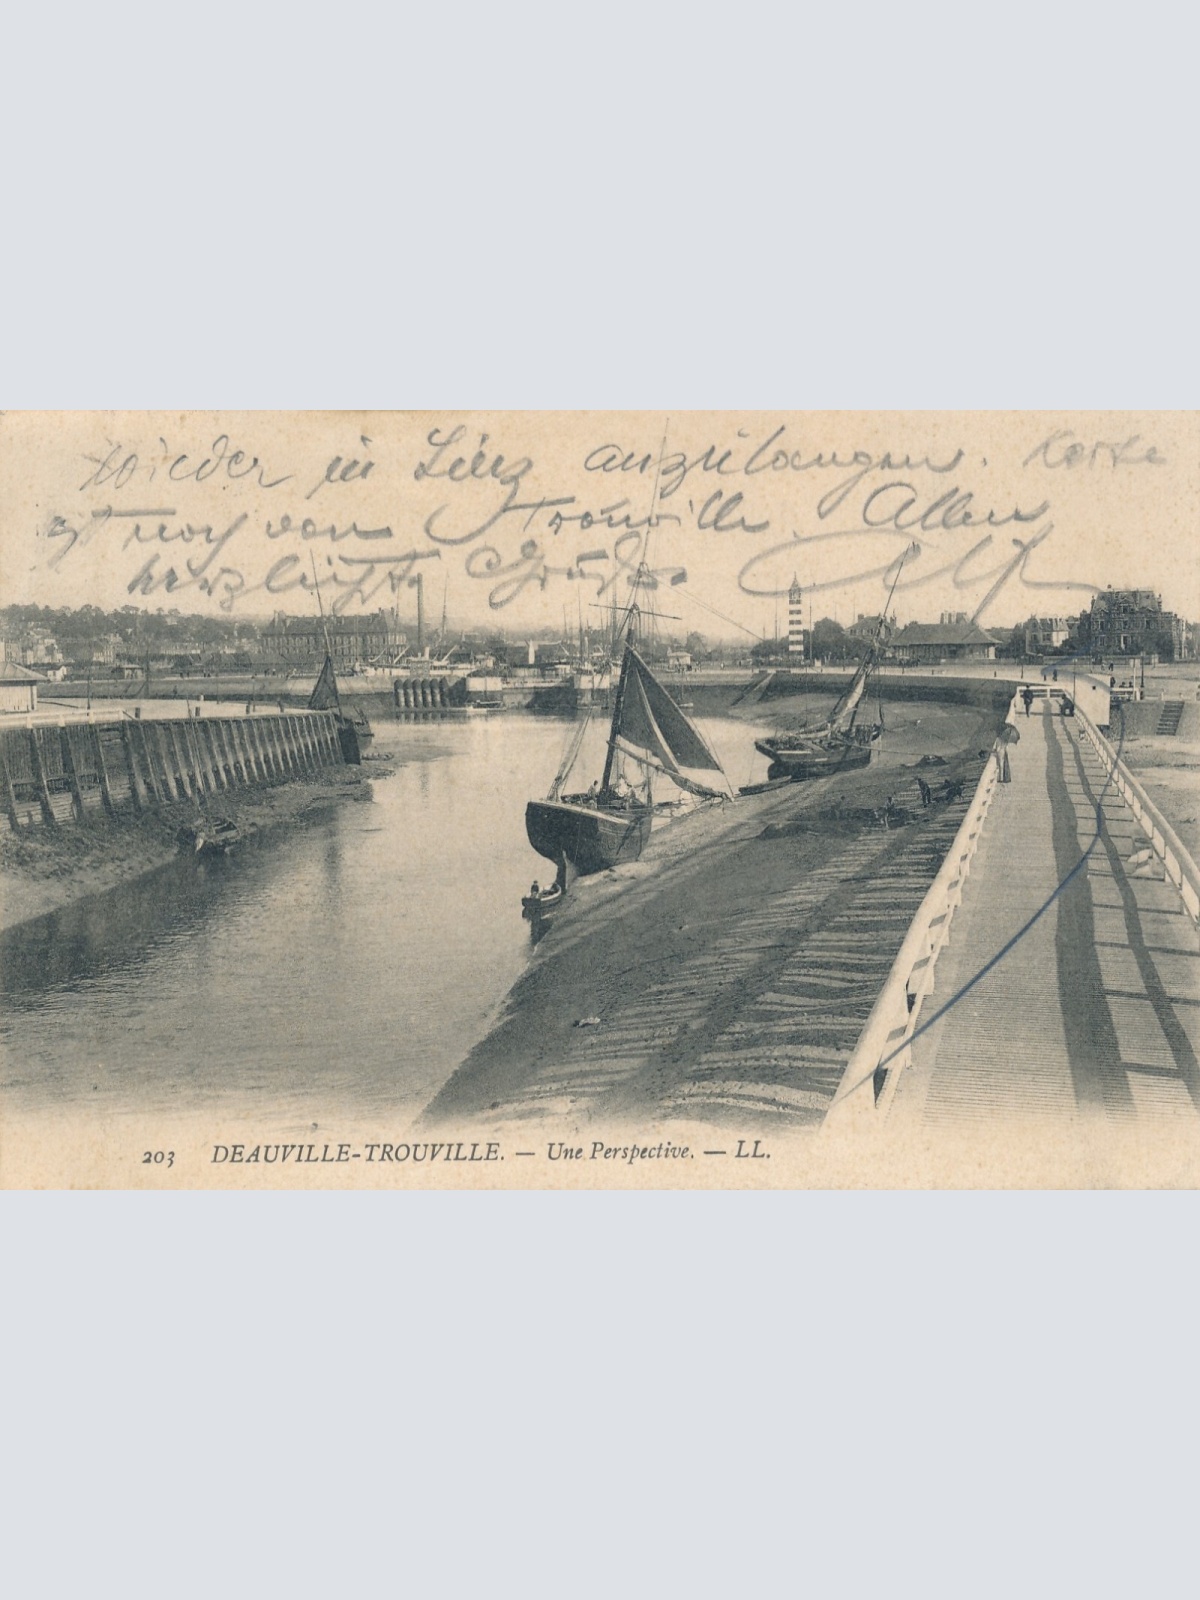 wieder in Linz anzulangen. Karte
ist noch von Trouville. Allen
herzlichste Grüße
203 DEAUVILLE-TROUVILLE. — Une Perspective. — LL.